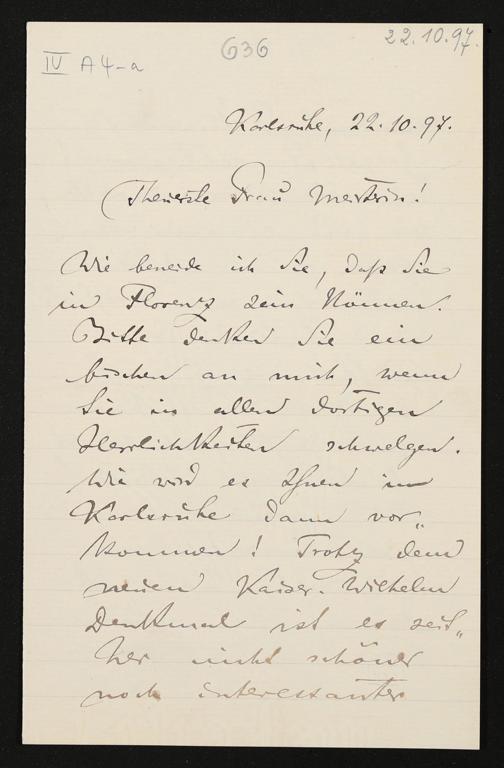 22.10.97.
636
IV A4-a
Karlsruhe, 22.10.97.
Theuerste Frau Meisterin!
Wie beneide ich Sie, daß Sie
in Florenz sein können.
Bitte denken Sie ein
bischen an mich, wenn
Sie in allen dortigen
Herrlichkeiten schwelgen.
Wie wird es Ihnen in
Karlsruhe dann vor„
kommen! Trotz dem
neuen Kaiser-Wilhelm
Denkmal ist es seit„
her nicht schöner
noch interessanter